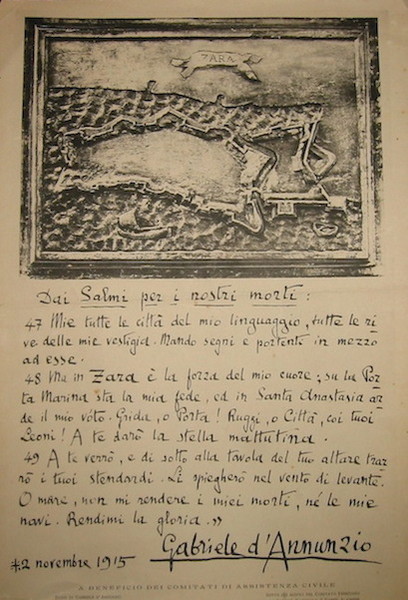 ZARA
Dai Salmi per i nostri morti:
47 Mie tutte le città del mio linguaggio, tutte le ri
ve delle mie vestigia. Mando segni e portenti in mezzo
ad esse.
48 Ma in Zara è la forza del mio cuore; su la Por
ta Marina sta la mia fede, ed in Santa Anastasia ar
de il mio vóto. Grida, o Porta! Ruggi, o Città, coi tuoi
Leoni! A te darò la stella mattutina.
49 A te verrò, e di sotto alla tavola del tuo altare trar
rò i tuoi stendardi. Li spiegherò nel vento di levante.
O mare, non mi rendere i miei morti, né le mie
navi. Rendimi la gloria. »
Gabriele d'Annunzio
2 novembre 1915
A BENEFICIO DEI COMITATI DI ASSISTENZA CIVILE